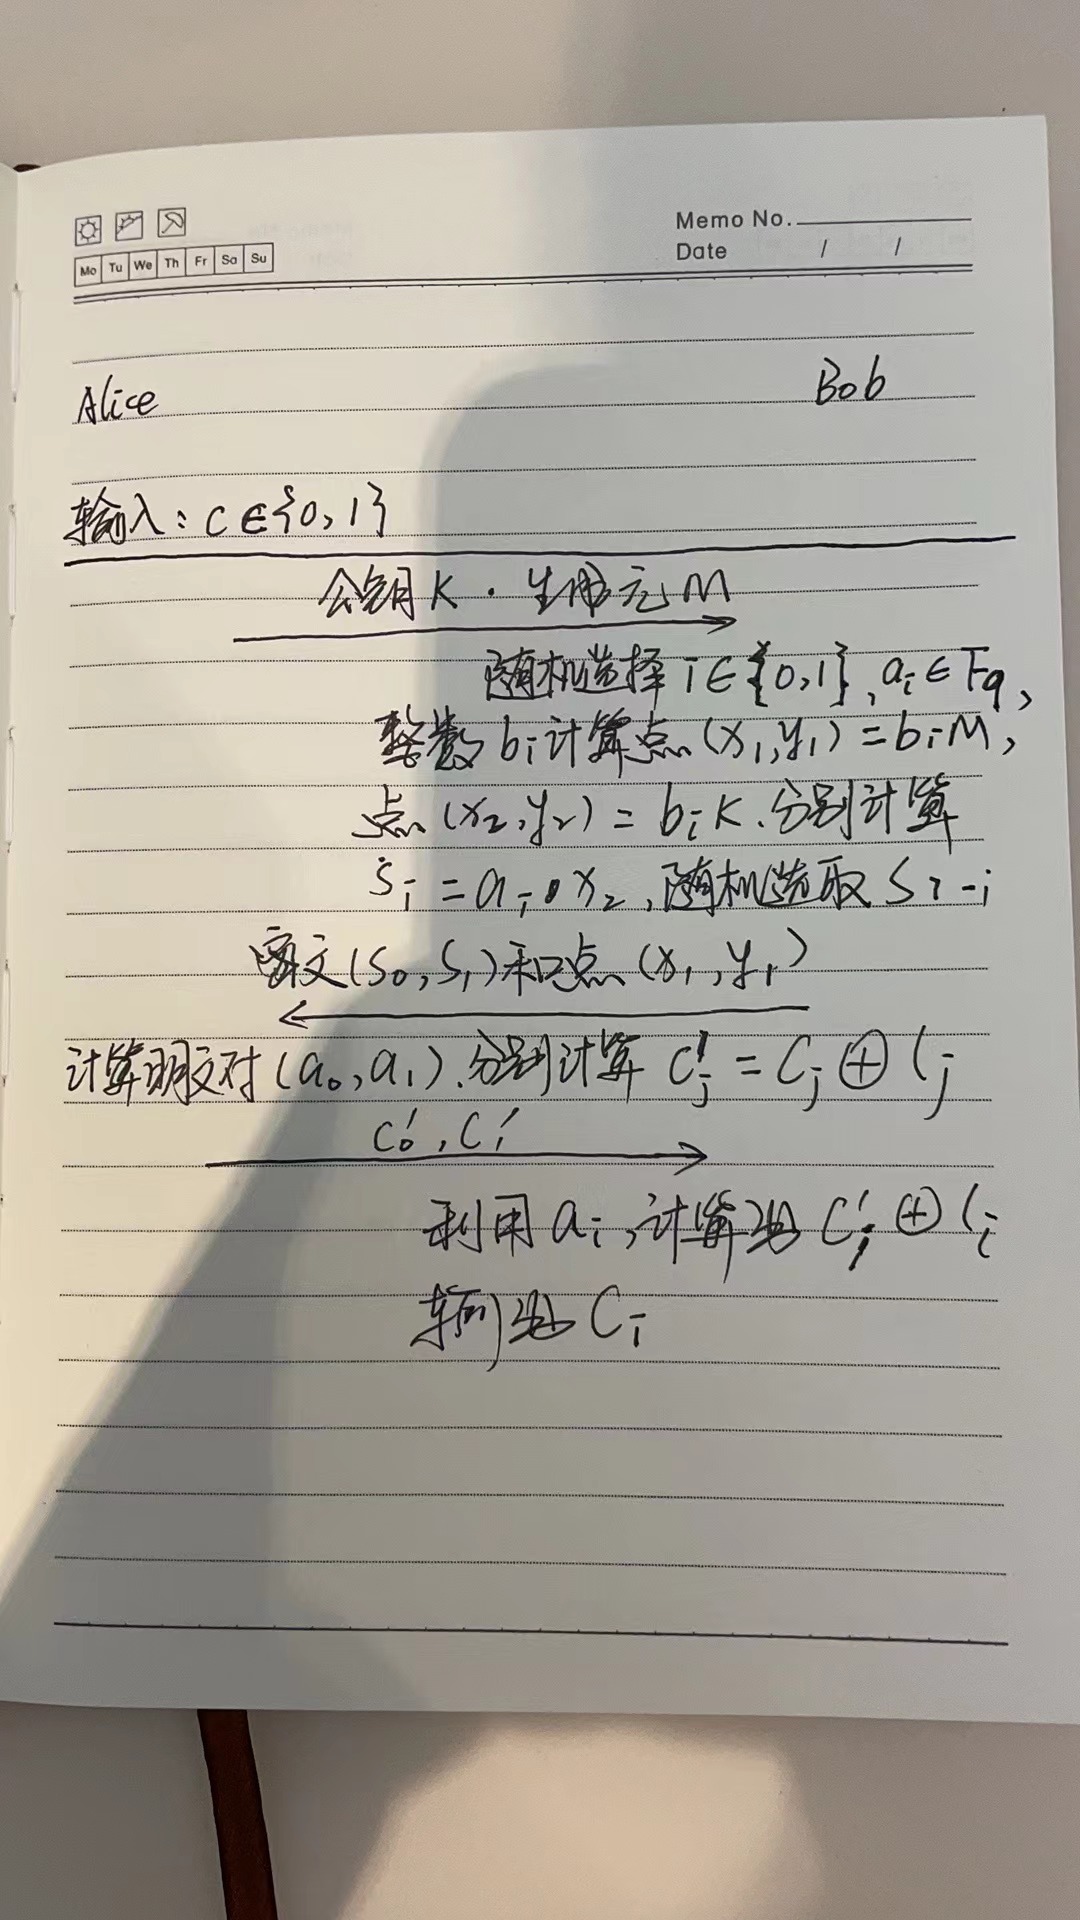 Memo No.
Mo Tu We Th Fr Sa Su
Date / /
Alice Bob
输入：C∈{0,1}
公钥K·生成元M
随机选择i∈{0,1},aᵢ∈Fq,
整数bᵢ计算点(x₁,y₁)=bᵢM,
点(x₂,y₂)=bᵢK.分别计算
Sᵢ=aᵢ·x₂,随机选取S₁₋ᵢ
密文(S₀,S₁)和点(x₁,y₁)
计算明文对(a₀,a₁).分别计算 C'ⱼ=Cⱼ⊕lⱼ
C₀',C₁'
利用aᵢ,计算出C'ᵢ⊕lᵢ
输出Cᵢ